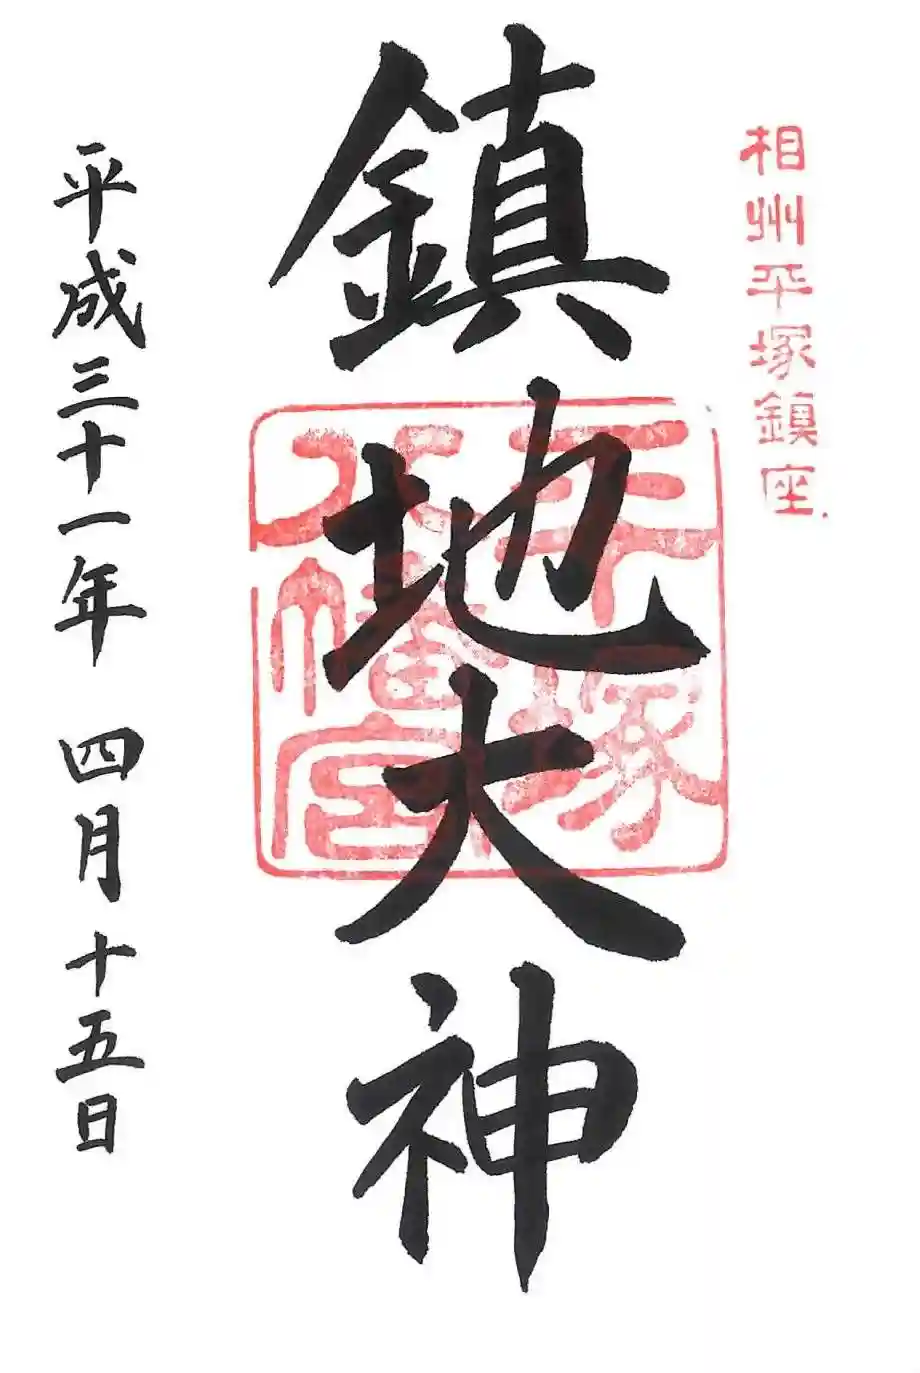 相州平塚鎮座
鎮地大神
平塚
八幡宮
平成三十一年 四月十五日